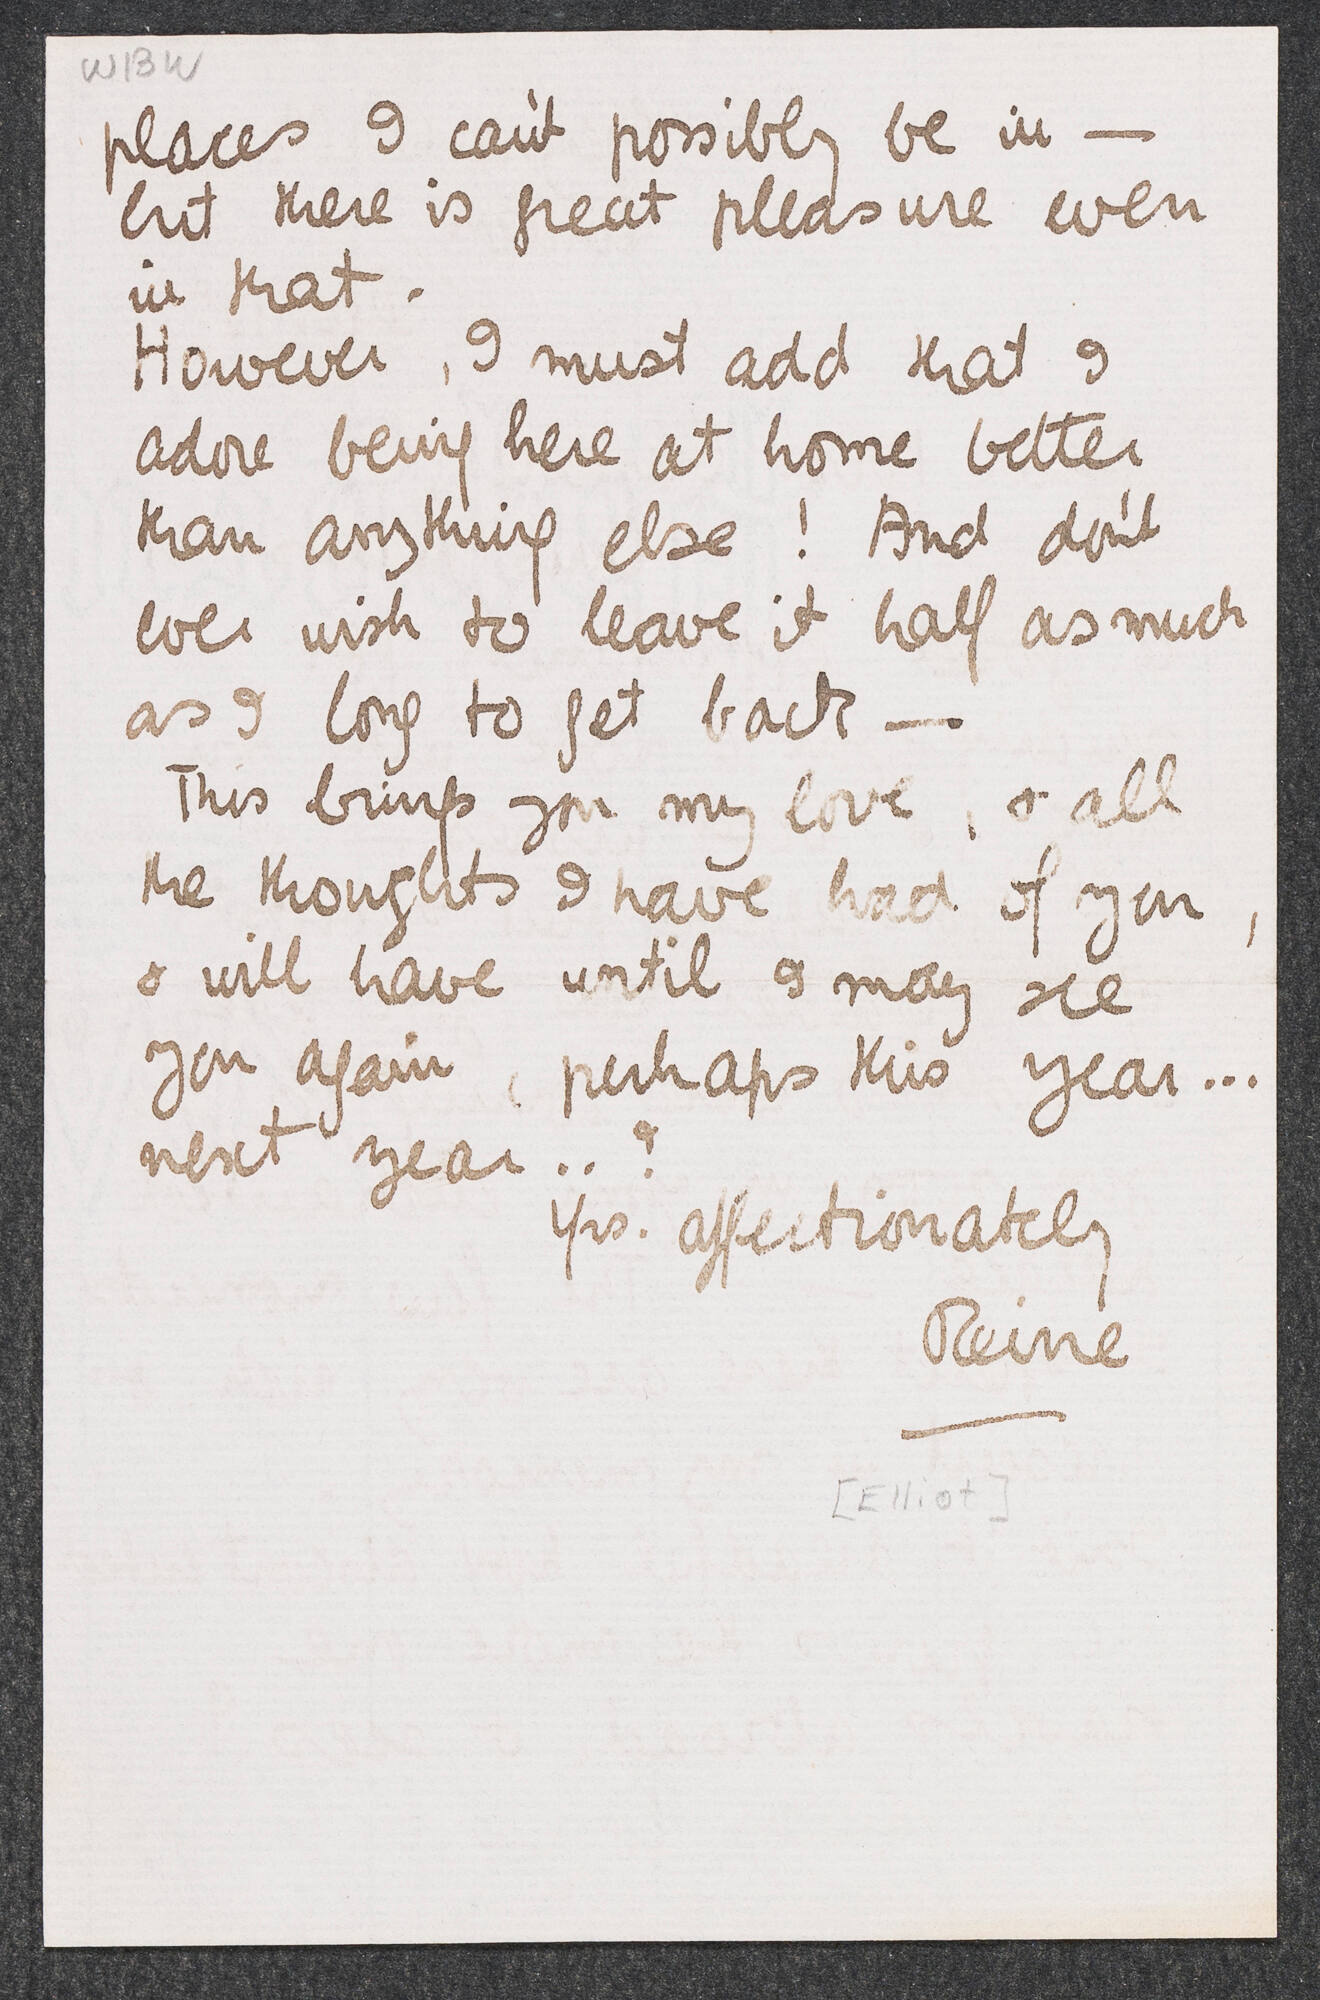 WBW
places I can't possibly be in —
but there is great pleasure even
in that.
However, I must add that I
adore being here at home better
than anything else! And don't
ever wish to leave it half as much
as I long to get back —
This brings you my love, & all
the thoughts I have had of you,
& will have until I may see
you again, perhaps this year...
next year..?
Yrs. affectionately
Reine
[Elliot]